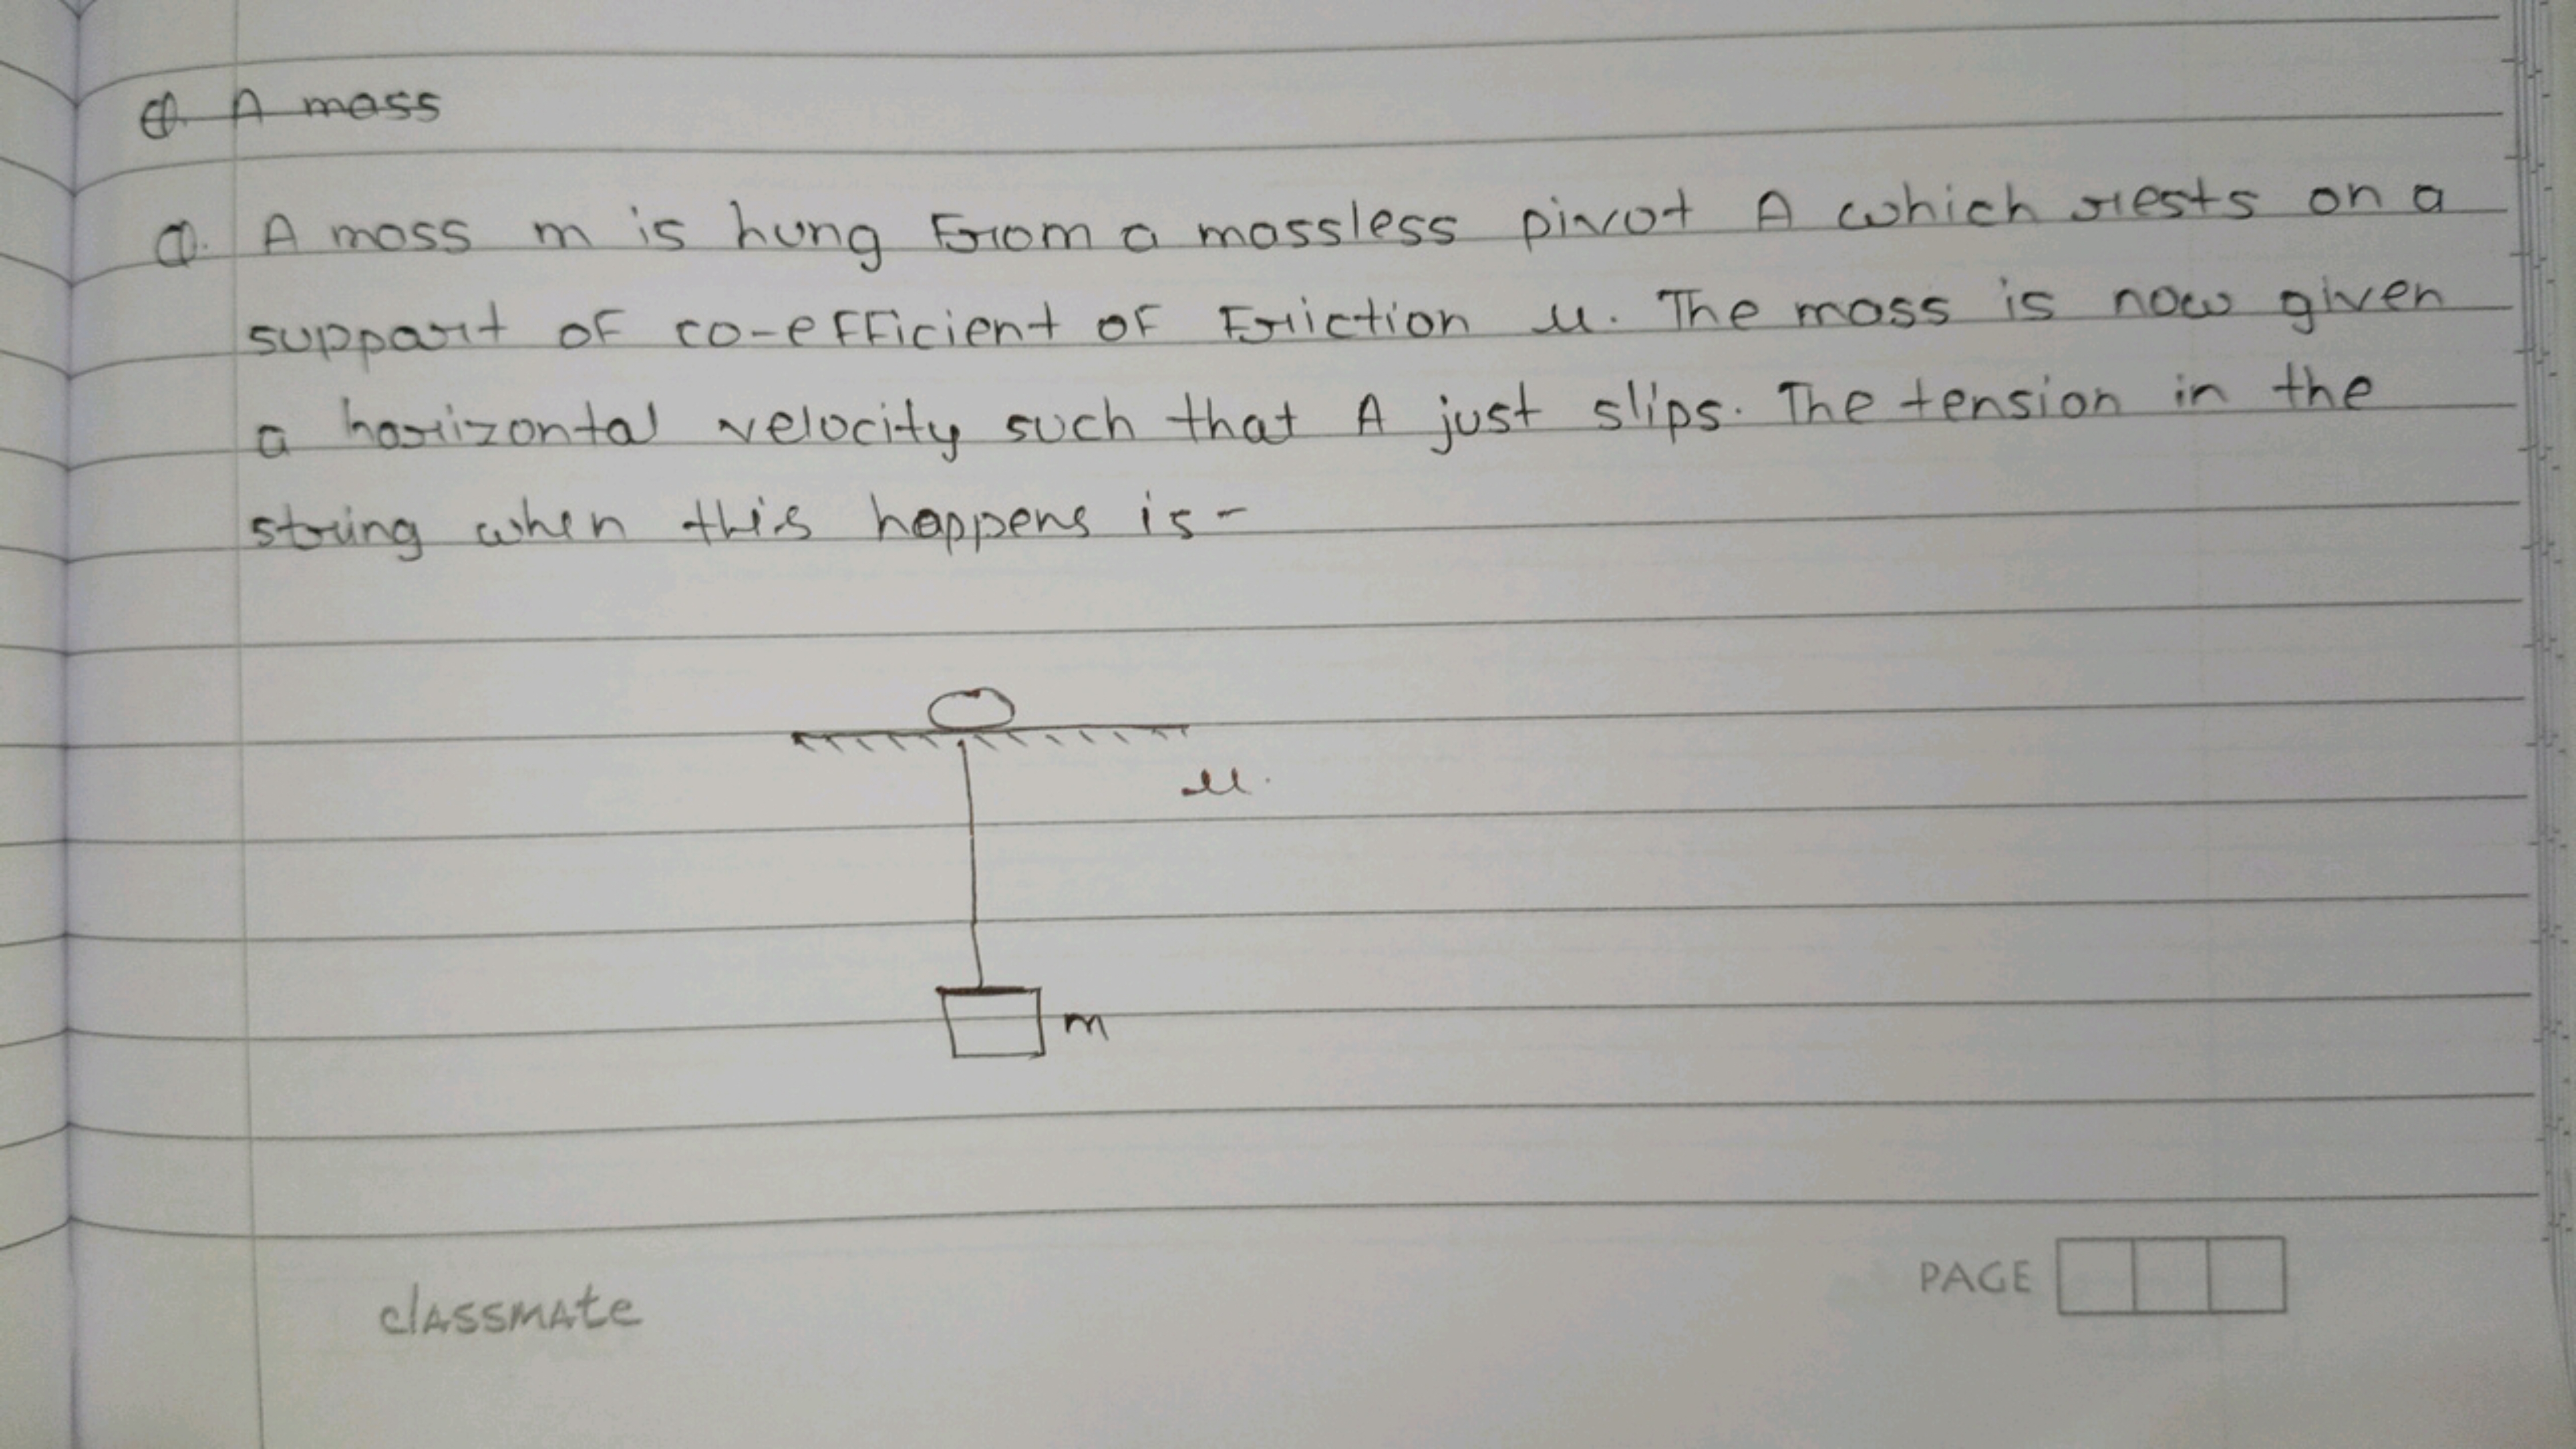 Q. A mass
Q. A mass m is hung From a massless pivot A which rests on a
support of co-efficient of Friction μ. The mass is now given
a horizontal velocity such that A just slips. The tension in the
string when this happens is-
μ.
m
PAGE
classmate